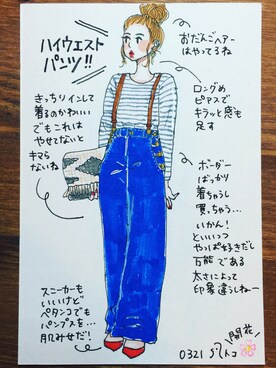 ハイウエスト
パンツ!!
おだんごヘアー
はやってるね
きっちりインして
着るのかわいい
でもこれは
やせてないと
キマら
ないね
ロングめ
ピアスで
キラッと感も
足す
ボーダー
ばっかり
着ちゃうし
買っちゃう…
いかん!
といいつつ
やっぱ好きだし
万能である
太さによって
印象違うしねー
スニーカーも
いいけど
ペタンコでも
パンプスを…
肌みせだ!
開花!
0321